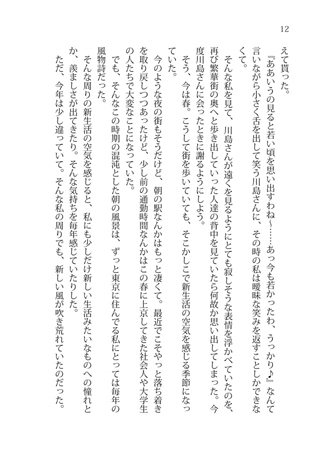 12
えて貰った。
『ああいうの見ると若い頃を思い出すわね〜……あっ今も若かったわ、うっかり♪』なんて
言いながら小さく舌を出して笑う川島さんに、その時の私は曖昧な笑みを返すことしかできな
くて。
そんな私を見て、川島さんが遠くを見るようにとても寂しそうな表情を浮かべていたのを、
再び繁華街の奥へと歩き出していった人達の背中を見ていたら何故か思い出してしまった。今
度川島さんに会ったときに謝るようにしよう。
そう、今は春。こうして街を歩いていても、そこかしこで新生活の空気を感じる季節になっ
ていた。
今のような夜の街もそうだけど、朝の駅なんかはもっと凄くて。最近でこそやっと落ち着き
を取り戻しつつあったけど、少し前の通勤時間なんかはこの春に上京してきた社会人や大学生
の人たちで大変なことになっていた。
でも、そんなこの時期の混沌とした朝の風景は、ずっと東京に住んでる私にとっては毎年の
風物詩だった。
そんな周りの新生活の空気を感じると、私にも少しだけ新しい生活みたいなものへの憧れと
か、羨ましさが出てきたり。そんな気持ちを毎年感じていたりした。
ただ、今年は少し違っていて。そんな私の周りでも、新しい風が吹き荒れていたのだった。